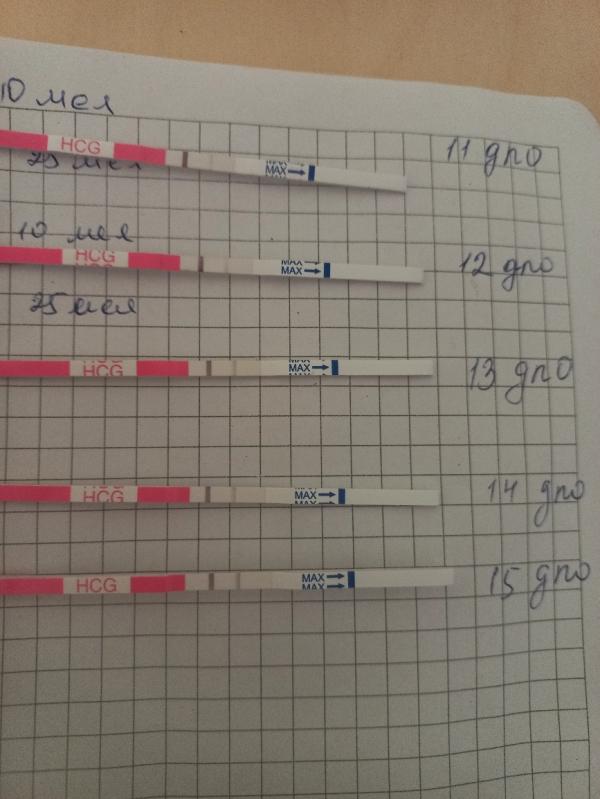 10 мел
HCG
MAX
11 дпо
25 мел
10 мел
HCG
MAX
12 дпо
25 мел
HCG
MAX
13 дпо
HCG
MAX
14 дпо
HCG
MAX
15 дпо